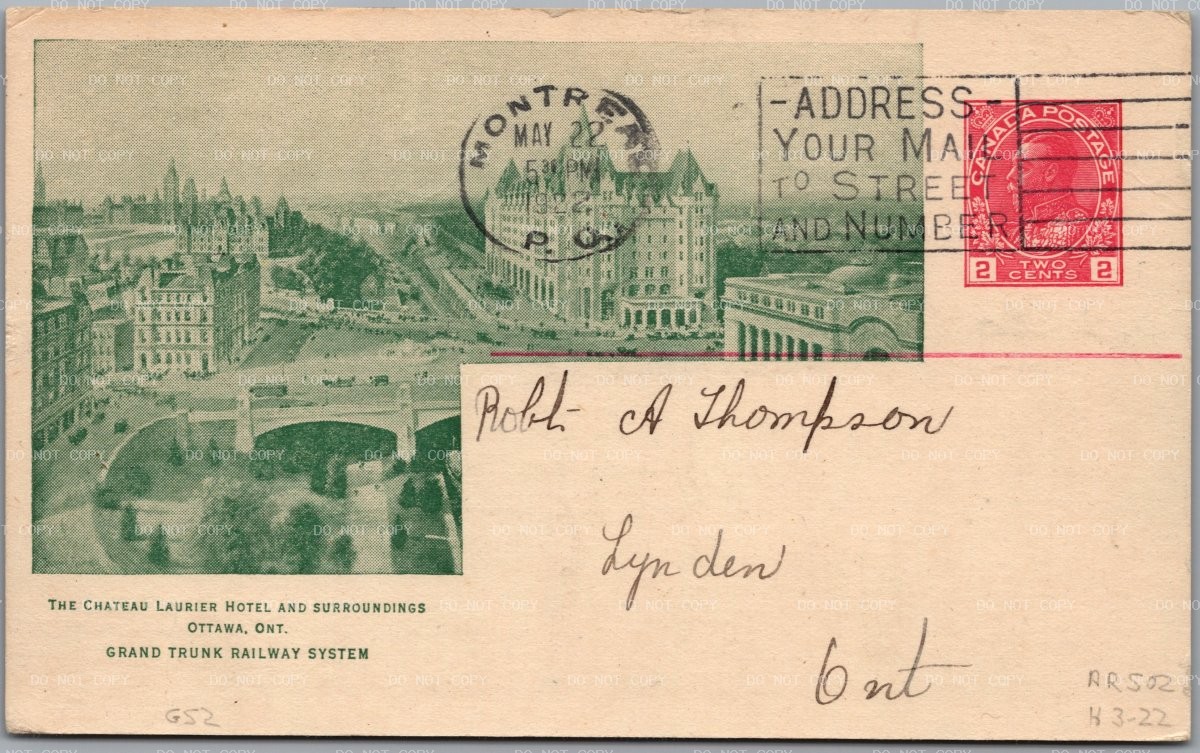 MONTREAL
MAY 22
5 30 PM
1922
P. Q.
-ADDRESS-
YOUR MAIL
TO STREET
AND NUMBER
CANADA POSTAGE
2 TWO CENTS 2
Robt A Thompson
Lynden
Ont
THE CHATEAU LAURIER HOTEL AND SURROUNDINGS
OTTAWA, ONT.
GRAND TRUNK RAILWAY SYSTEM
G52
AR502
H3-22
DO NOT COPY